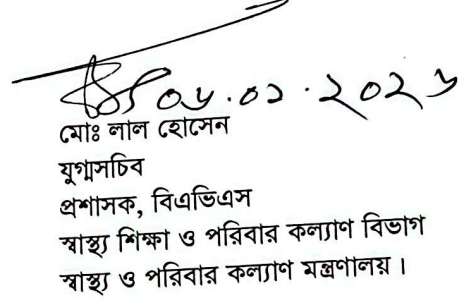 ০৬.০১.২০২৬
মোঃ লাল হোসেন
যুগ্মসচিব
প্রশাসক, বিএভিএস
স্বাস্থ্য শিক্ষা ও পরিবার কল্যাণ বিভাগ
স্বাস্থ্য ও পরিবার কল্যাণ মন্ত্রণালয়।